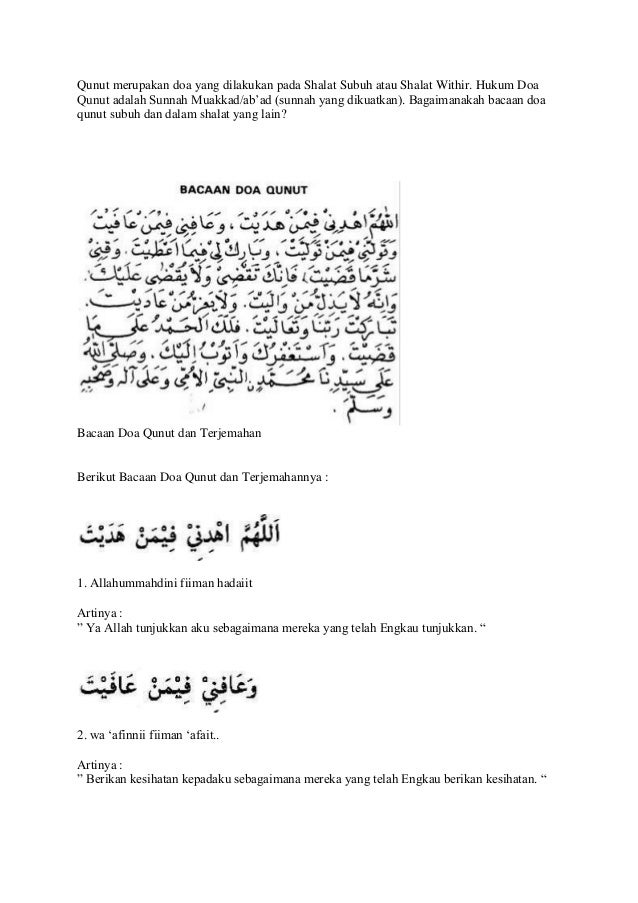 Qunut merupakan doa yang dilakukan pada Shalat Subuh atau Shalat Withir. Hukum Doa
Qunut adalah Sunnah Muakkad/ab’ad (sunnah yang dikuatkan). Bagaimanakah bacaan doa
qunut subuh dan dalam shalat yang lain?
BACAAN DOA QUNUT
اَللّٰهُمَّ اهْدِنِيْ فِيْمَنْ هَدَيْتَ ، وَعَافِنِي فِيْمَنْ عَافَيْتَ
وَتَوَلَّنِيْ فِيْمَنْ تَوَلَّيْتَ ، وَبَارِكْ لِيْ فِيْمَا اَعْطَيْتَ . وَقِنِيْ
شَرَّمَا قَضَيْتَ ، فَاِنَّكَ تَقْضِيْ وَلَا يُقْضٰى عَلَيْكَ .
وَاِنَّهُ لَا يَذِلُّ مَنْ وَالَيْتَ . وَلَا يَعِزُّ مَنْ عَادَيْتَ .
تَبَارَكْتَ رَبَّنَا وَتَعَالَيْتَ . فَلَكَ الْحَمْدُ عَلٰى مَا
قَضَيْتَ . وَاَسْتَغْفِرُكَ وَاَتُوْبُ اِلَيْكَ . وَصَلَّى اللهُ
عَلٰى سَيِّدِنَا مُحَمَّدٍ النَّبِيِّ الْاُمِّيِّ وَعَلٰى آلِهِ وَصَحْبِهِ
وَسَلَّمَ .
Bacaan Doa Qunut dan Terjemahan
Berikut Bacaan Doa Qunut dan Terjemahannya :
اَللّٰهُمَّ اهْدِنِيْ فِيْمَنْ هَدَيْتَ
1. Allahummahdini fiiman hadaiit
Artinya :
” Ya Allah tunjukkan aku sebagaimana mereka yang telah Engkau tunjukkan. “
وَعَافِنِيْ فِيْمَنْ عَافَيْتَ
2. wa ‘afinnii fiiman ‘afait..
Artinya :
” Berikan kesihatan kepadaku sebagaimana mereka yang telah Engkau berikan kesihatan. “